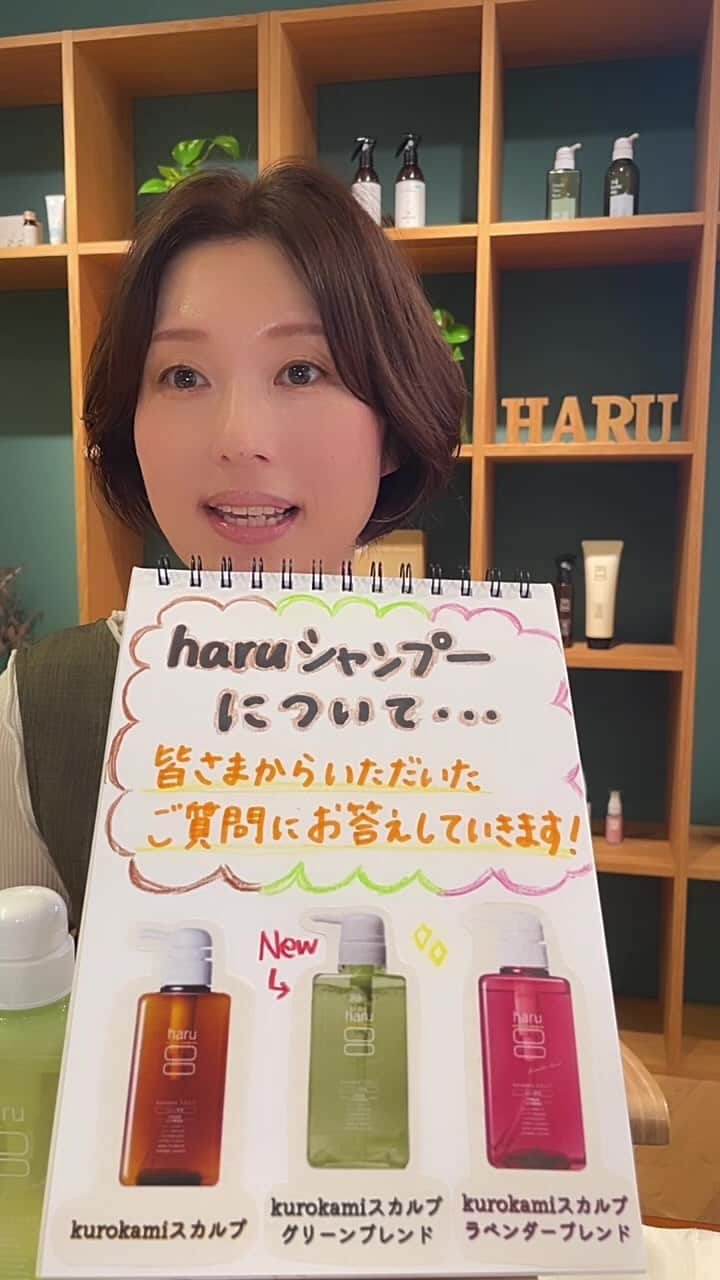 HARU
haruシャンプー
について・・・
皆さまからいただいた
ご質問にお答えしていきます！
New
haru
haru
haru
kurokamiスカルプ
kurokamiスカルプ
グリーンブレンド
kurokamiスカルプ
ラベンダーブレンド
haru